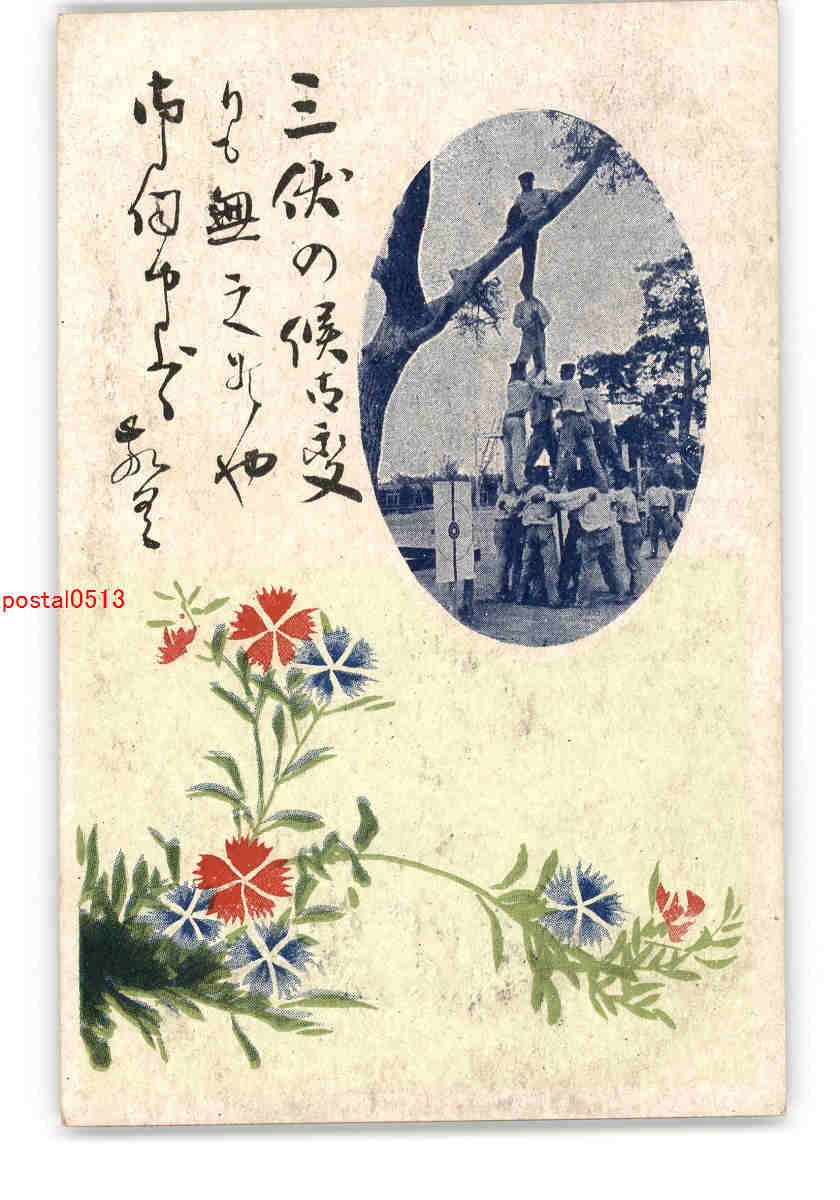 三伏の候御変
りも無之候や
御伺申上候
敬具
postal0513